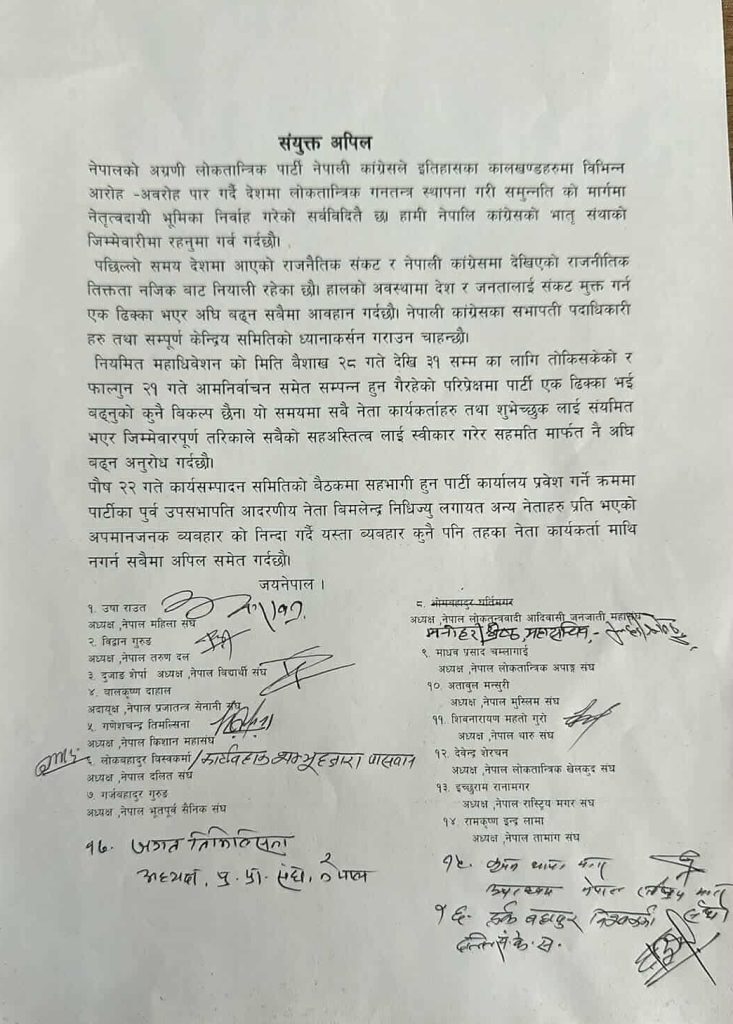 संयुक्त अपिल
नेपालको अग्रणी लोकतान्त्रिक पार्टी नेपाली कांग्रेसले इतिहासका कालखण्डहरुमा विभिन्न
आरोह -अबरोह पार गर्दै देशमा लोकतान्त्रिक गनतन्त्र स्थापना गरी समुन्नति को मार्गमा
नेतृत्वदायी भूमिका निर्वाह गरेको सर्वविदितै छ। हामी नेपालि कांग्रेसको भातृ संथाको
जिम्मेवारीमा रहनुमा गर्व गर्दछौ।
पछिल्लो समय देशमा आएको राजनैतिक संकट र नेपाली कांग्रेसमा देखिएको राजनीतिक
तिक्तता नजिक बाट नियाली रहेका छौ। हालको अवस्थामा देश र जनतालाई संकट मुक्त गर्न
एक ढिक्का भएर अघि बढ्न सबैमा आवहान गर्दछौ। नेपाली कांग्रेसका सभापती पदाधिकारी
हरु तथा सम्पूर्ण केन्द्रिय समितिको ध्यानाकर्सन गराउन चाहन्छौ।
नियमित महाधिवेशन को मिति बैशाख २८ गते देखि ३१ सम्म का लागि तोकिसकेको र
फाल्गुन २१ गते आमनिर्वाचन समेत सम्पन्न हुन गैरहेको परिप्रेक्षमा पार्टी एक ढिक्का भई
बढ्नुको कुनै बिकल्प छैन। यो समयमा सबै नेता कार्यकर्ताहरु तथा शुभेच्छुक लाई संयमित
भएर जिम्मेवारपूर्ण तरिकाले सबैको सहअस्तित्व लाई स्वीकार गरेर सहमति मार्फत नै अघि
बढ्न अनुरोध गर्दछौ।
पौष २२ गते कार्यसम्पादन समितिको बैठकमा सहभागी हुन पार्टी कार्यालय प्रवेश गर्ने क्रममा
पार्टीका पुर्व उपसभापति आदरणीय नेता बिमलेन्द्र निधिज्यु लगायत अन्य नेताहरु प्रति भएको
अपमानजनक ब्यवहार को निन्दा गर्दै यस्ता ब्यबहार कुनै पनि तहका नेता कार्यकर्ता माथि
नगर्न सबैमा अपिल समेत गर्दछौ।
जयनेपाल ।
१. उषा राउत
अध्यक्ष ,नेपाल महिला संघ
२. बिद्वान गुरुङ
अध्यक्ष ,नेपाल तरुण दल
३. दुजाङ शेर्पा अध्यक्ष ,नेपाल विद्यार्थी संघ
४. बालकृष्ण दाहाल
अदायक्ष ,नेपाल प्रजातन्त्र सेनानी संघ
५. गणेशचन्द्र तिमल्सिना
अध्यक्ष ,नेपाल किशान महासंघ
६. लोकबहादुर बिस्वकर्मा /कार्यवाहक पासवान
अध्यक्ष ,नेपाल दलित संघ
७. गर्जबहादुर गुरुङ
अध्यक्ष ,नेपाल भूतपूर्व सैनिक संघ
१७. जगत तिमिल्सिना
अध्यक्ष, प्रे. संघ, नेपाल
८. ओमबहादुर घर्तिमगर
अध्यक्ष ,नेपाल लोकतन्त्रवादी आदिवासी जनजाती महासंघ
मनोहरी श्रेष्ठ, महासचिव,-
९. माधब प्रसाद चम्लागाई
अध्यक्ष ,नेपाल लोकतान्त्रिक अपाङ्ग संघ
१०. अताबुल मन्सुरी
अध्यक्ष ,नेपाल मुस्लिम संघ
११. शिबनारायण महतो गुरो
अध्यक्ष ,नेपाल थारु संघ
१२. देवेन्द्र शेरचन
अध्यक्ष ,नेपाल लोकतान्त्रिक खेलकुद संघ
१३. इच्छुराम रानामगर
अध्यक्ष ,नेपाल रास्ट्रिय मगर संघ
१४. रामकृष्ण इन्द्र लामा
अध्यक्ष ,नेपाल तामांग संघ
१५. थापा मगर
नेपाल मगर संघ
१६. हर्क बहादुर विश्वकर्मा
दलित सं. के. स.